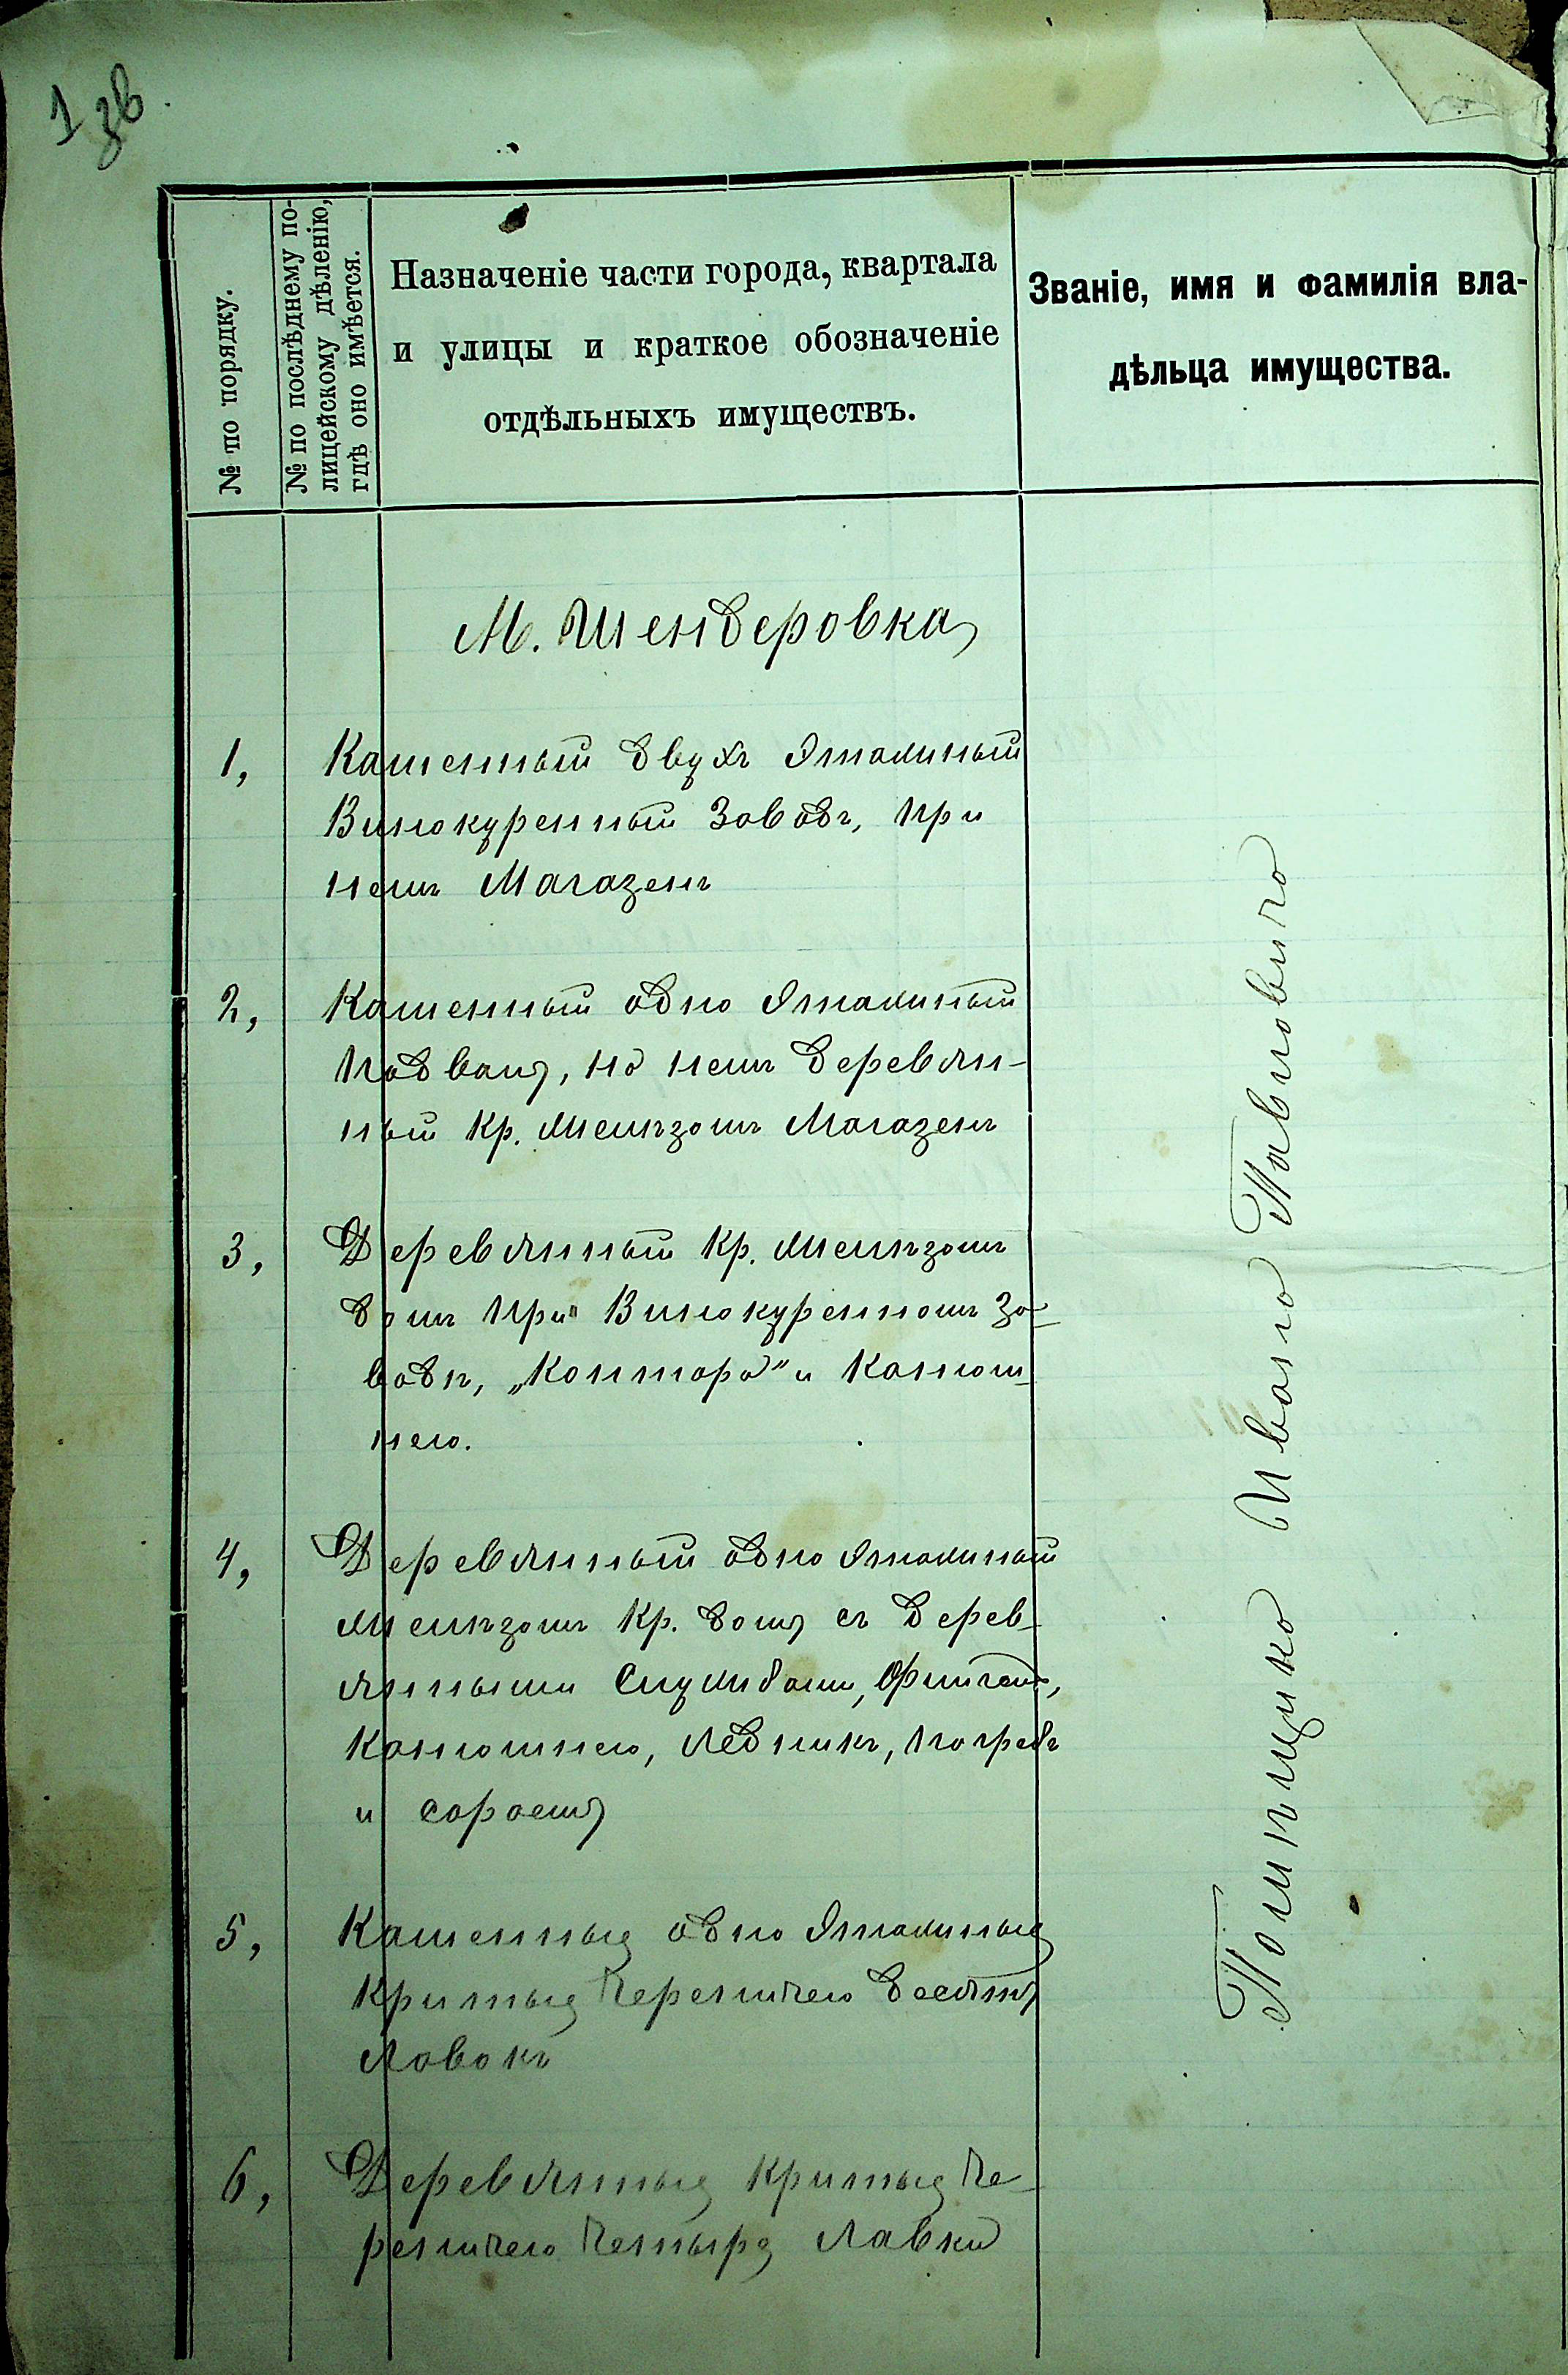 1 зв.
№ по порядку.
№ по послѣднему по-
лицейскому дѣленію,
гдѣ оно имѣется.
Назначеніе части города, квартала
и улицы и краткое обозначеніе
отдѣльныхъ имуществъ.
Званіе, имя и фамилія вла-
дѣльца имущества.
М. Шендеровка
1, Каменный двухъ этажный
Винокуренный Завадъ, при
немъ Магазенъ
2, Каменный одно этажный
подвалъ, на немъ деревян-
ный кр. желѣзомъ Магазенъ
3, Деревянный кр. желѣзомъ
домъ при Винокуренномъ За-
вадѣ, „Контора" и Конюш-
нею.
4, Деревянный одно этажный
желѣзомъ кр. домъ съ дерев-
янными Службами,
Конюшнею, Ледникъ, погребъ
и сараемъ
5, Каменные одно этажные
критые черепичею десять
Лавокъ
6, Деревянные критые че-
репичею четыре Лавки
Помѣщико Ивано Павловичо